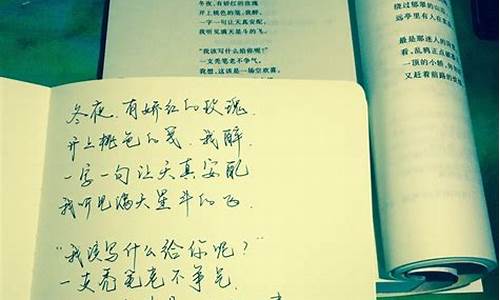 冬夜,有娇红的玫瑰
开上桃色的笺,我醉,
一字一句让天真安配,
我听见满天星斗的飞。
“我该写什么给你呢?”
一支秃笔老不争气。
我想,这该是一场空欢喜。
绕过郁翠的山
远亭里有人在
最是那迷人的
看,乱鸦正点破
一顶的小轿,
又赶着前路的
冬夜,有娇红的玫瑰,
开上桃色的笺,我醉
一字一句让天真安配
我听见满天星斗的飞
“我该写什么给你呢?”
一支秃笔老不争气